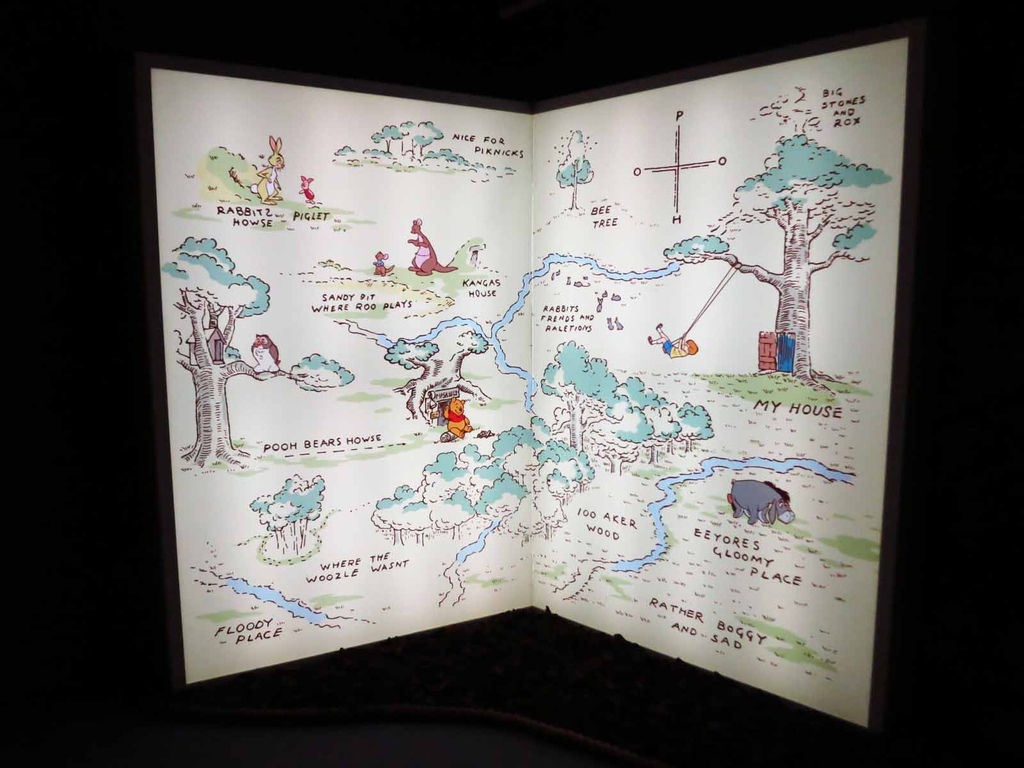 NICE FOR
PIKNICKS
RABBITZ
HOWSE
PIGLET
KANGAS
HOUSE
SANDY PIT
WHERE ROO PLAYS
POOH BEARS HOWSE
WHERE THE
WOOZLE WASNT
FLOODY
PLACE
BIG
STONES
AND
ROX
P
O
O
H
BEE
TREE
RABBITS
FRENDS AND
RALETIONS
MY HOUSE
100 AKER
WOOD
EEYORES
GLOOMY
PLACE
RATHER BOGGY
AND SAD